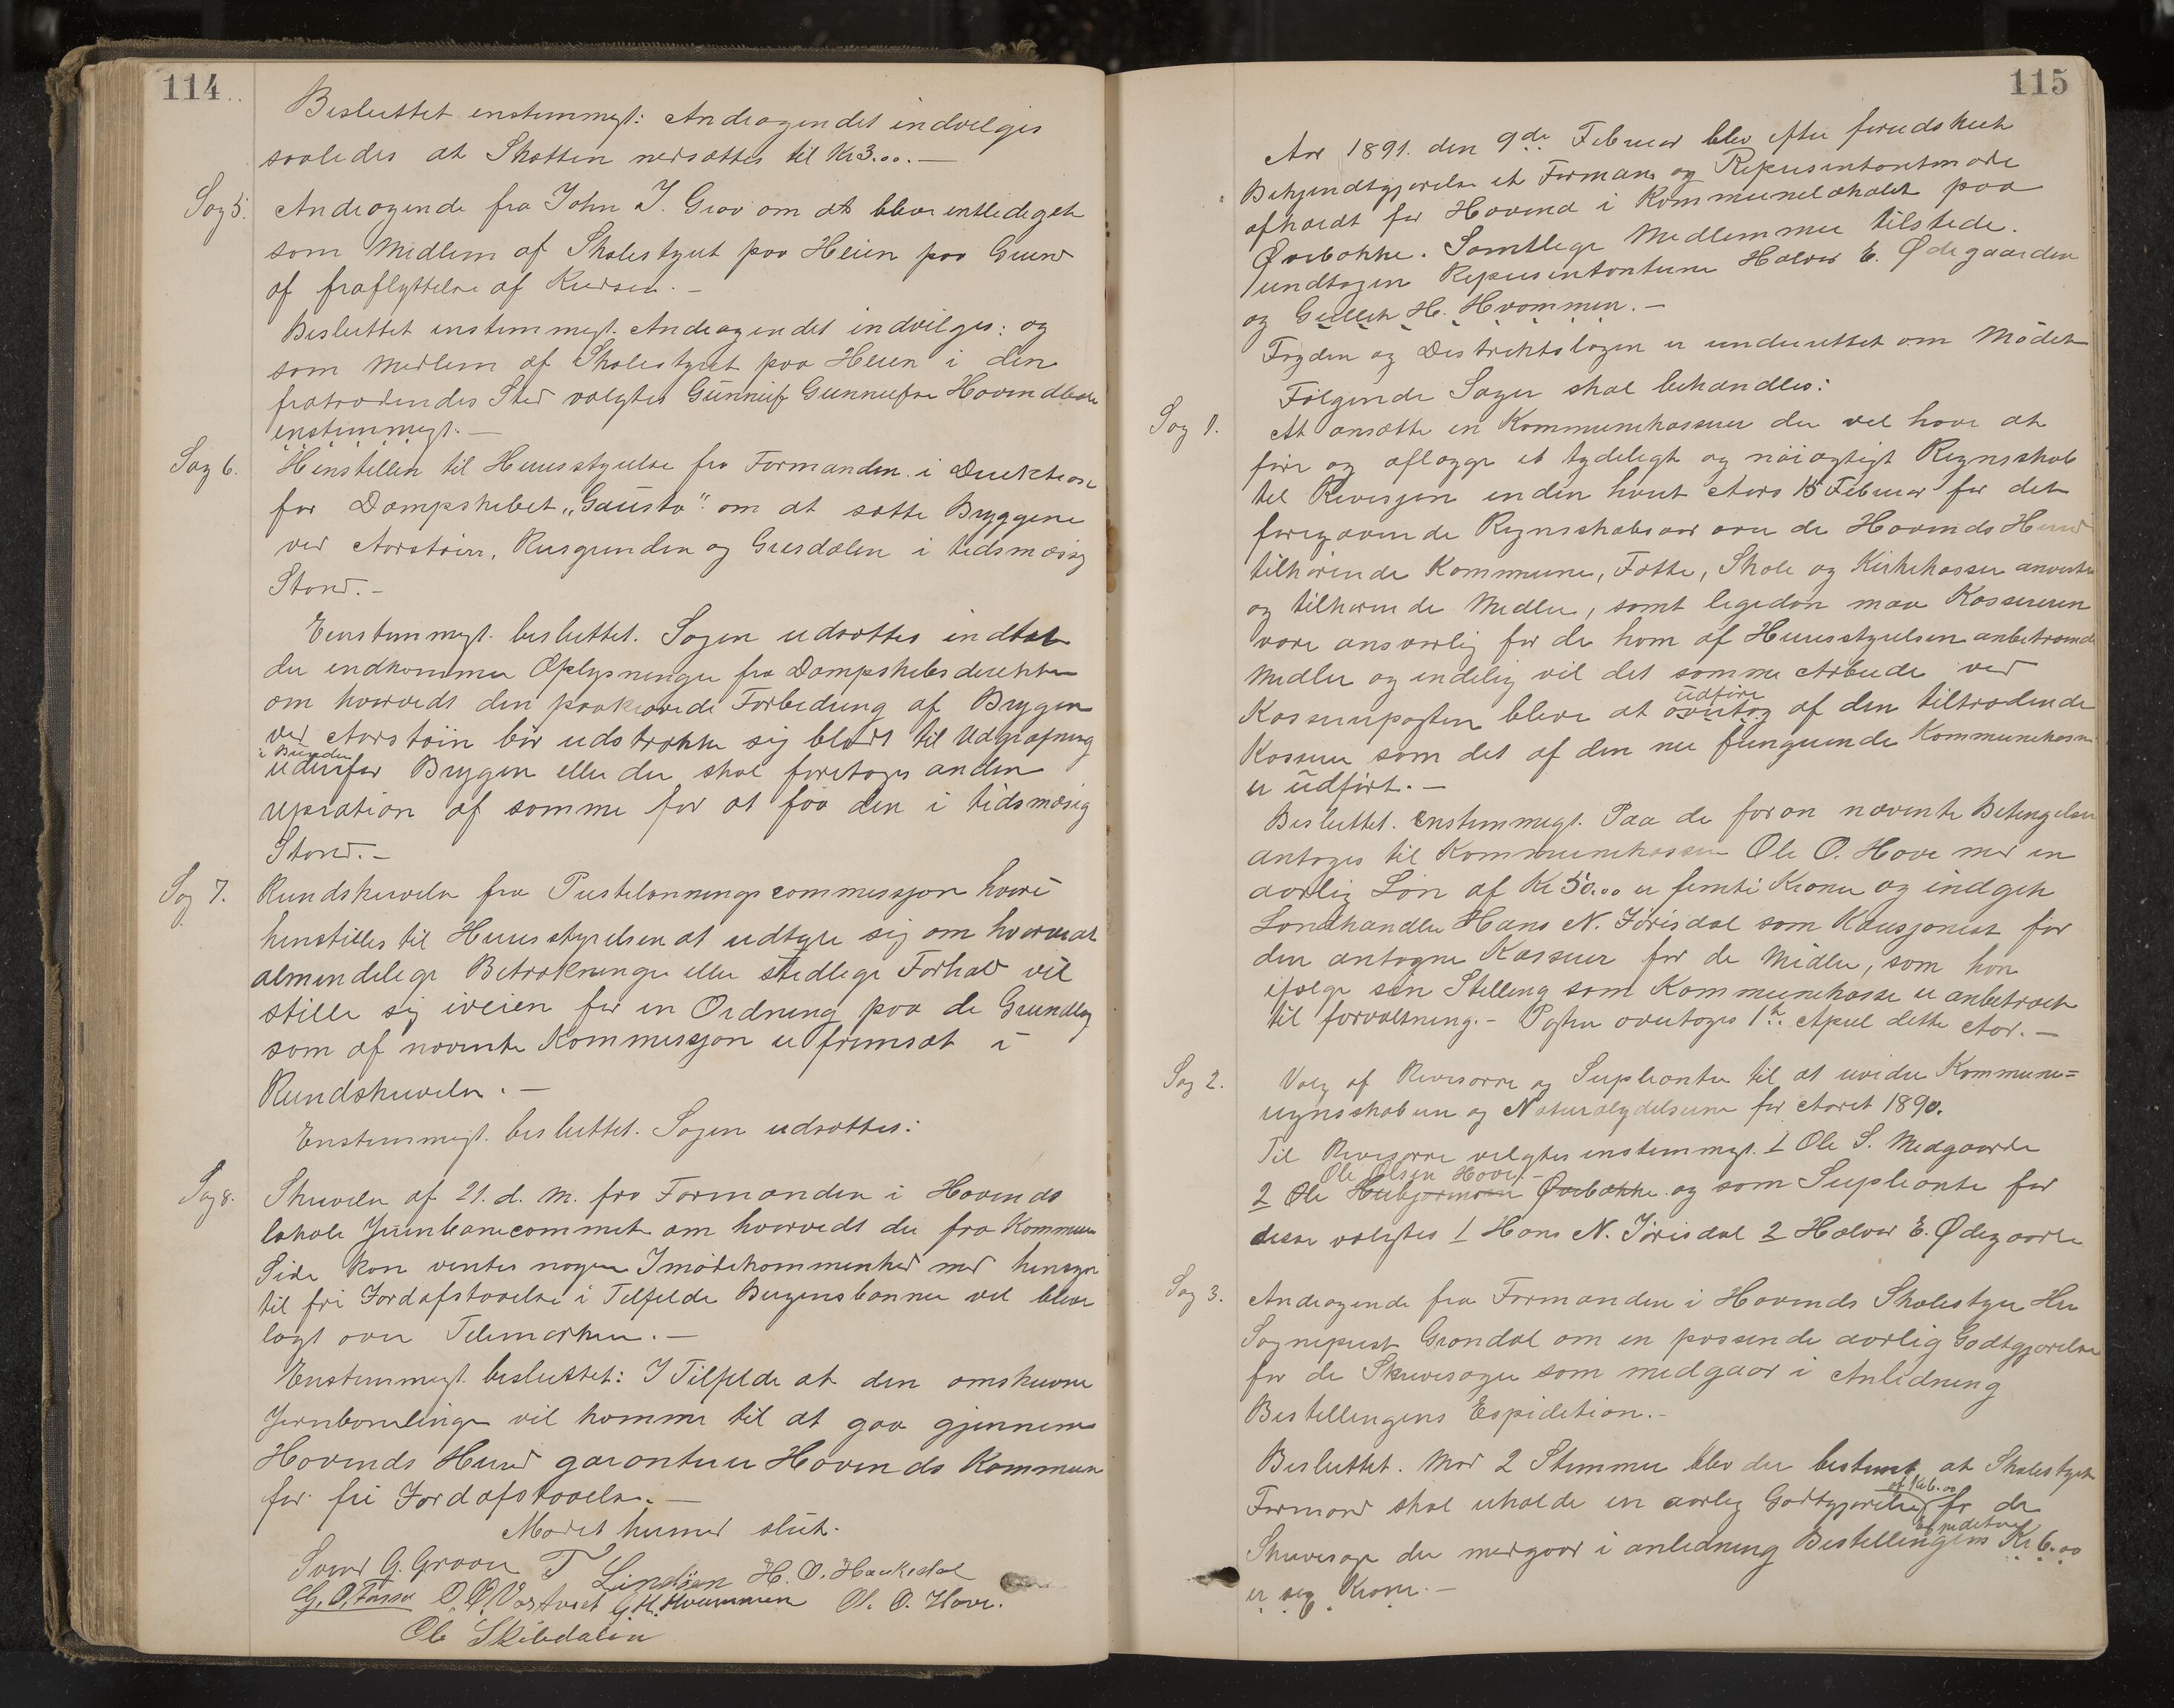 114
Besluttet enstemmigt: Andragendet indvilges
saaledes at Skatten nedsættes til Kr 3.00.—
Sag 5. Andragende fra John J. Grav om at blive entlediget
som Medlem af Skolestyret paa Heien paa Grund
af fraflyttelse af Kredsen.—
Besluttet enstemmigt. Andragendet indvilges: og
som Medlem af Skolestyret paa Heien i den
fratrædendes Sted valgtes Gunnuf Gunnufsen
enstemmigt.—
Sag 6. Henstillen til Herredsstyrelse fra Formanden i Direktion
for Dampskibet „Gausta" om at sætte Bryggene
ved Aarstøin, Rusgrunden og Gresdalen i tidsmæssig
Stand.—
Eenstemmigt besluttet. Sagen udsættes indtil
der indkommer Oplysninger fra Dampskibsdirektion
om hvorvidt den paakrævede Forbedring af Bryggen
ved Aarstøin bør udstrække sig blott til Udgrafning
i Bunden
udenfor Brygen eller der skal foretages anden
repration af samme for at faa den i tidsmæsig
Stand.—
Sag 7. Rundskrivelse fra Prestelønningscommissjon hvori
henstilles til Herredsstyrelsen at udtale sig om hvorvidt
almindelige Betrakninger eller stedlige Forhold vil
stille sig iveien for en Ordning paa de Grundlag
som af nævnte Kommissjon er fremsat i
Rundskrivelse.—
Enstemmigt besluttet. Sagen udsættes:
Sag 8. Skrivelse af 21. d. M. fra Formanden i Hovinds
lokale Jernbanecommite om hvorvidt der fra Kommunens
Side kan ventes nogen Imødekommenhed med hensyn
til fri Jordafstaaelse i Tilfælde Bergensbannen vil blive
lagt over Telemarken.—
Enstemmigt besluttet: I Tilfelde at den omskrevne
Jernbanelinge vil komme til at gaa gjennem
Hovinds Herred garanterer Hovinds Kommune
for fri Jordafstaaelse.—
Mødet hermed slut.
Svend G. Graver T Lindøen H. O. Haukedal
G. O. Fosso O. O. Vaatveit G. H. Hvammen Ol. O. Hove.
Ole Skibdalen
115
Aar 1891. den 9de Februar blev efter forudskeet
Bekjendtgjørelse et Formans og Repræsentantmøde
afholdt for Hovind i Kommunelokalet paa
Øverbøkke. Samtlege Medlemmer tilstede.
undtagen Repræsentanterne Halvor E. Ødegaarden
og Gullik H. Hvammen.—
Fogden og Distriktslægen er underrettet om Mødet
Følgende Sager skal behandles:
Sag 1. At ansætte en Kommunekasserer der vil have at
føre og aflægge et tydeligt og nøiagtigt Regnskab
til Revisjon inden hvert Aars 15 Februar for det
foregaaende Regnskabsaar over de Hovinds Herred
tilhørende Kommune, Fattig, Skole og Kirkekasser
og tilhørende Midler, samt ligedan maa Kassereren
være ansvarlig for de ham af Herredsstyrelsen anbetroede
Midler og endelig vil det samme Arbeide ved
Kassererposten blive at overtag udføre af den tiltrædende
Kasserer som det af den nu fungerende Kommunekasserer
er udført.—
Besluttet. enstemmigt. Paa de foran nævnte Betingelser
antoges til Kommunekasserer Ole O. Hove med en
aarlig Løn af Kr 50.00 er femti Kroner og indgik
Landhandler Hans N. Jørisdal som Kausjonist for
den antagne Kasserer for de Midler, som han
ifølge sin Stilling som Kommunekasse er anbetroet
til forvaltning.— Posten overtages 1te April dette Aar.—
Sag 2. Valg af Revisorer og Supleanter til at revidere Kommune=
regnskaberne og Naturalydelserne for Aaret 1890.
Til Revisorer velgtes enstemmigt. 1 Ole S. Medgaarden
Ole Olsen Hove.—
2 Ole Øverbøkke og som Supleanter for
disse valgtes 1 Hans N. Jørisdal 2 Halvor E. Ødegaarde
Sag 3. Andragende fra Formanden i Hovinds Skolestyre Her
Sognepræst Grøndal om en passende aarlig Godtgjørelse
for de Skrivesager som medgaar i Anledning
Bestellingens Expidition.—
Besluttet. Mod 2 Stemmer blev der bestemt at Skolestyrets
Formand skal erholde en aarlig Godtgjørelse af Kr 6.00 for de
Skrivesager der medgaar i anledning Bestellingens Expedition Kr 6.00
er sex Kroner.—